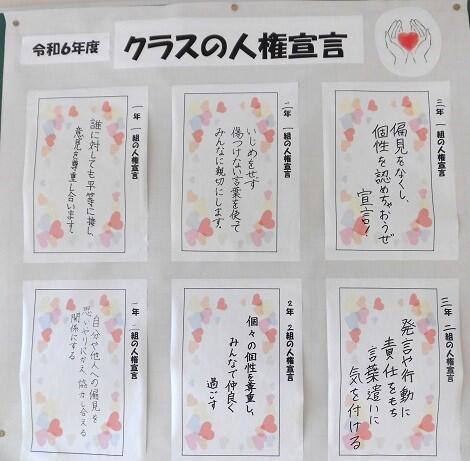 令和6年度
クラスの人権宣言
一年 一組の人権宣言
誰に対しても平等に接し、
意見を尊重し合います。
二年 一組の人権宣言
いじめをせず
傷つけない言葉を使って
みんなに親切にします。
三年 一組の人権宣言
偏見をなくし、
個性を認めちゃおうぜ
宣言!
一年 二組の人権宣言
自分や他人への偏見を
思いやりにかえ、協力し合える
関係にする
2年 2組の人権宣言
個々の個性を尊重し、
みんなで仲良く
過ごす
三年 二組の人権宣言
発言や行動に
責任をもち
言葉遣いに
気を付ける